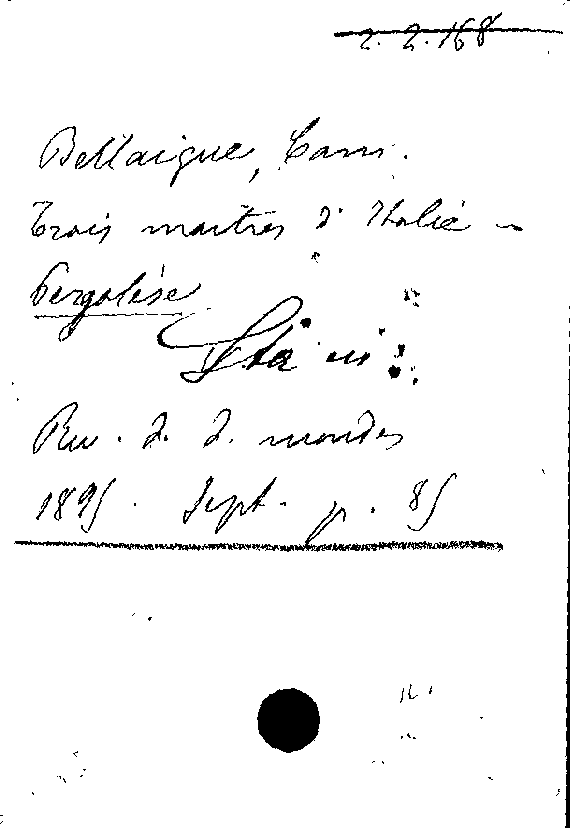 2. 2. 168
Bellaigue, Cam.
Trois maîtres d'Italie -
Pergolèse
Rev. d. d. mondes
1895. Sept. p. 85